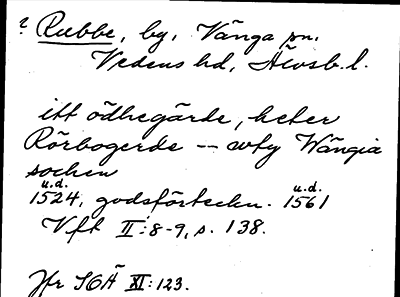 ? Rubbe, by, Vånga sn.
Vedens hd, Älvsb. l.
itt ödhegärde, heter
Rörbogerde -- wty Wångia
sochen
u.d. u.d.
1524, godsförteckn. 1561
Vft II:8-9, s. 138.
Jfr SOÄ XI:123.